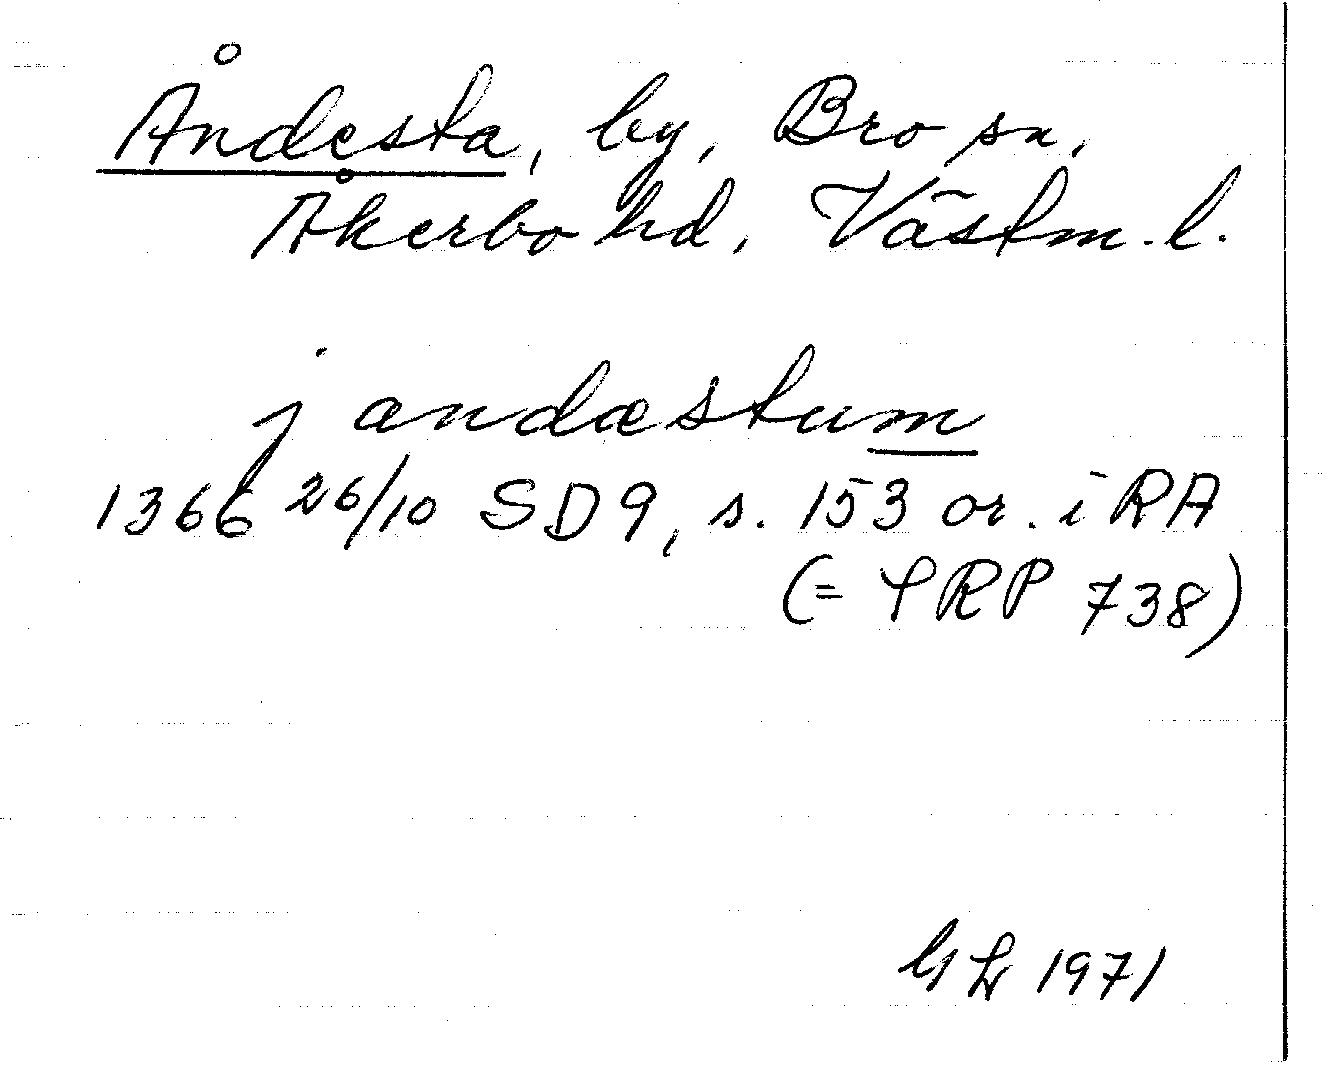 Åndesta, by, Bro sn,
Åkerbo hd, Västm. l.
j andæstum
1366 26/10 SD 9, s. 153 or. i RA
(= SRP 738)
1971